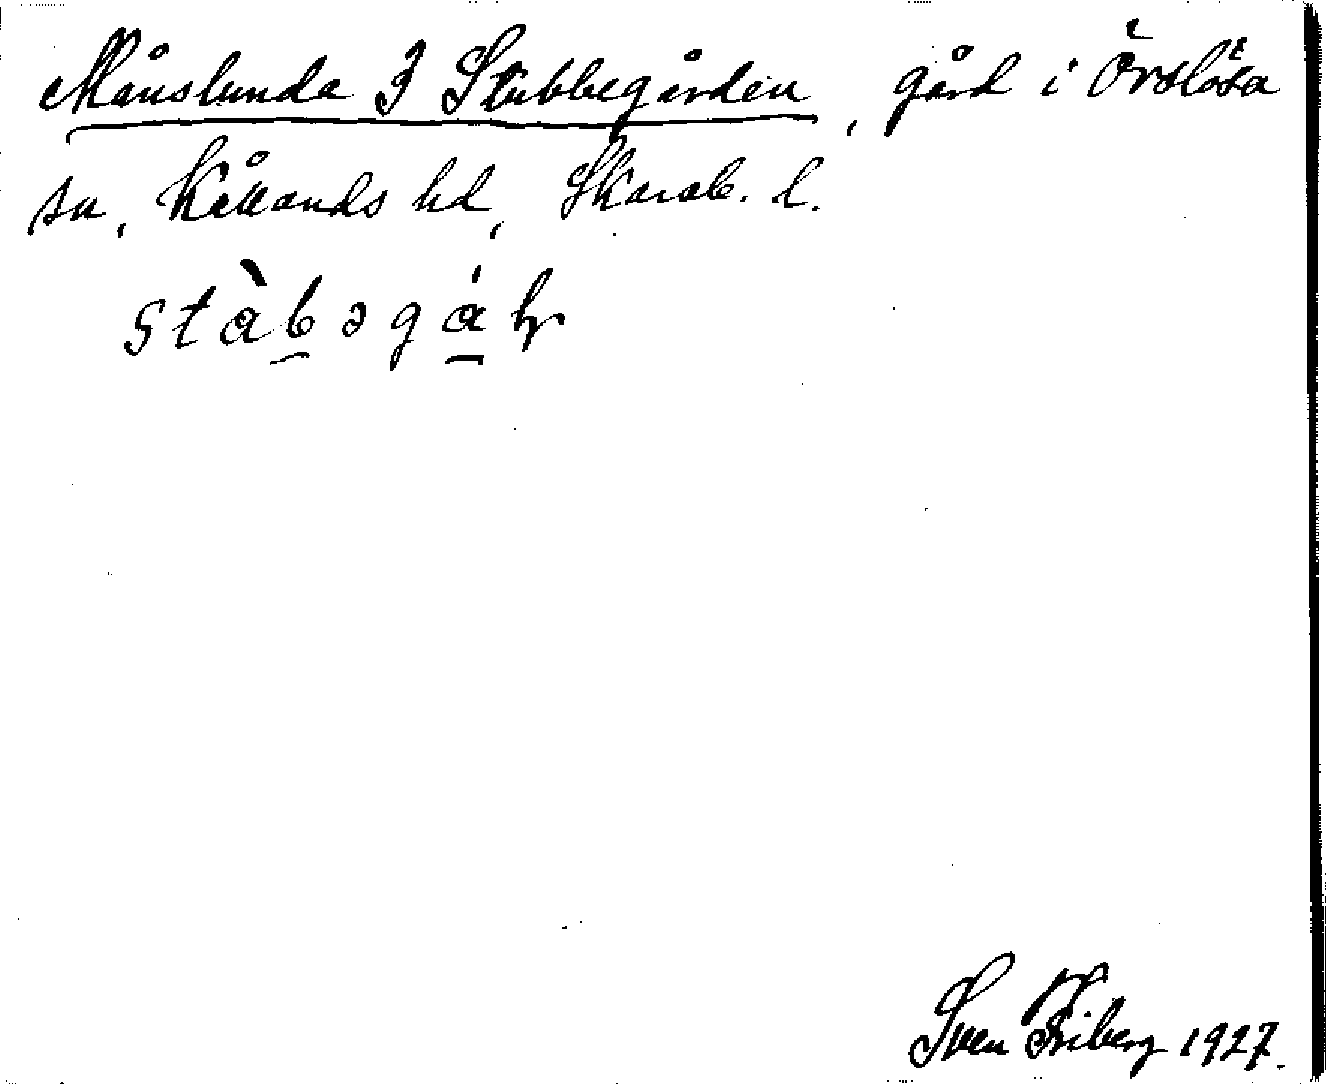 Månslunda 3 Stubbegården, gård i Örslösa
sn, Kållands hd, Skarab. l.
stàbəgáɳ
Sven Friberg 1927.